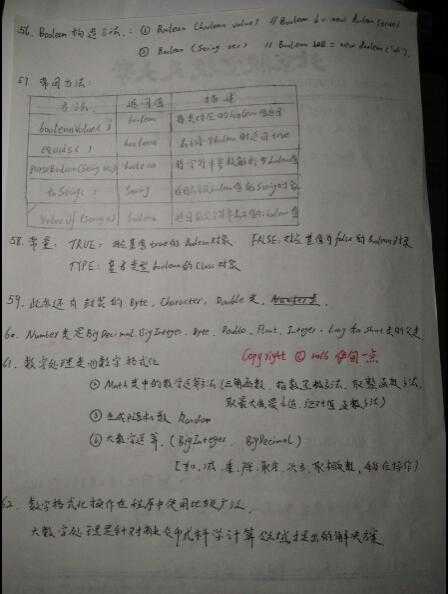 56. Boolean 构造方法: ① Boolean (boolean value) // Boolean b = new Boolean (true);
② Boolean (String str) // Boolean = new Boolean ("ok");
57 常用方法:
方法 返回值 描述
booleanValue() boolean 将 对应的boolean值返回
equals() boolean true
parseBoolean(String s) boolean 将字符串参数解析为boolean值
toString() String boolean值的String对象
ValueOf(String s) boolean boolean值
58. 常量: TRUE: 对应基值true的Boolean对象 FALSE: 对应基值为false的Boolean对象
TYPE: 基本类型boolean的Class对象
59. 此外还有封装的 Byte, Character, Double类, Number类.
60. Number类是BigDecimal. BigInteger, Byte. Double, Float, Integer, Long 和 Short类的父类
61. 数字处理类 数字格式化 Copyright @ 2016
② Math类中的数学运算方法 (三角函数, 指数函数方法, 取整函数方法, 取最大 最小值, 绝对值 函数方法)
③ 生成随机数 Random
④ 大数字运算, (BigInteger, BigDecimal)
[加, 减, 乘, 除, 取余, 次方, 取相反数, 移位操作)
62. 数字格式化操作在程序中使用比较广泛
大数字处理是针对 科学计算领域提出的解决方案